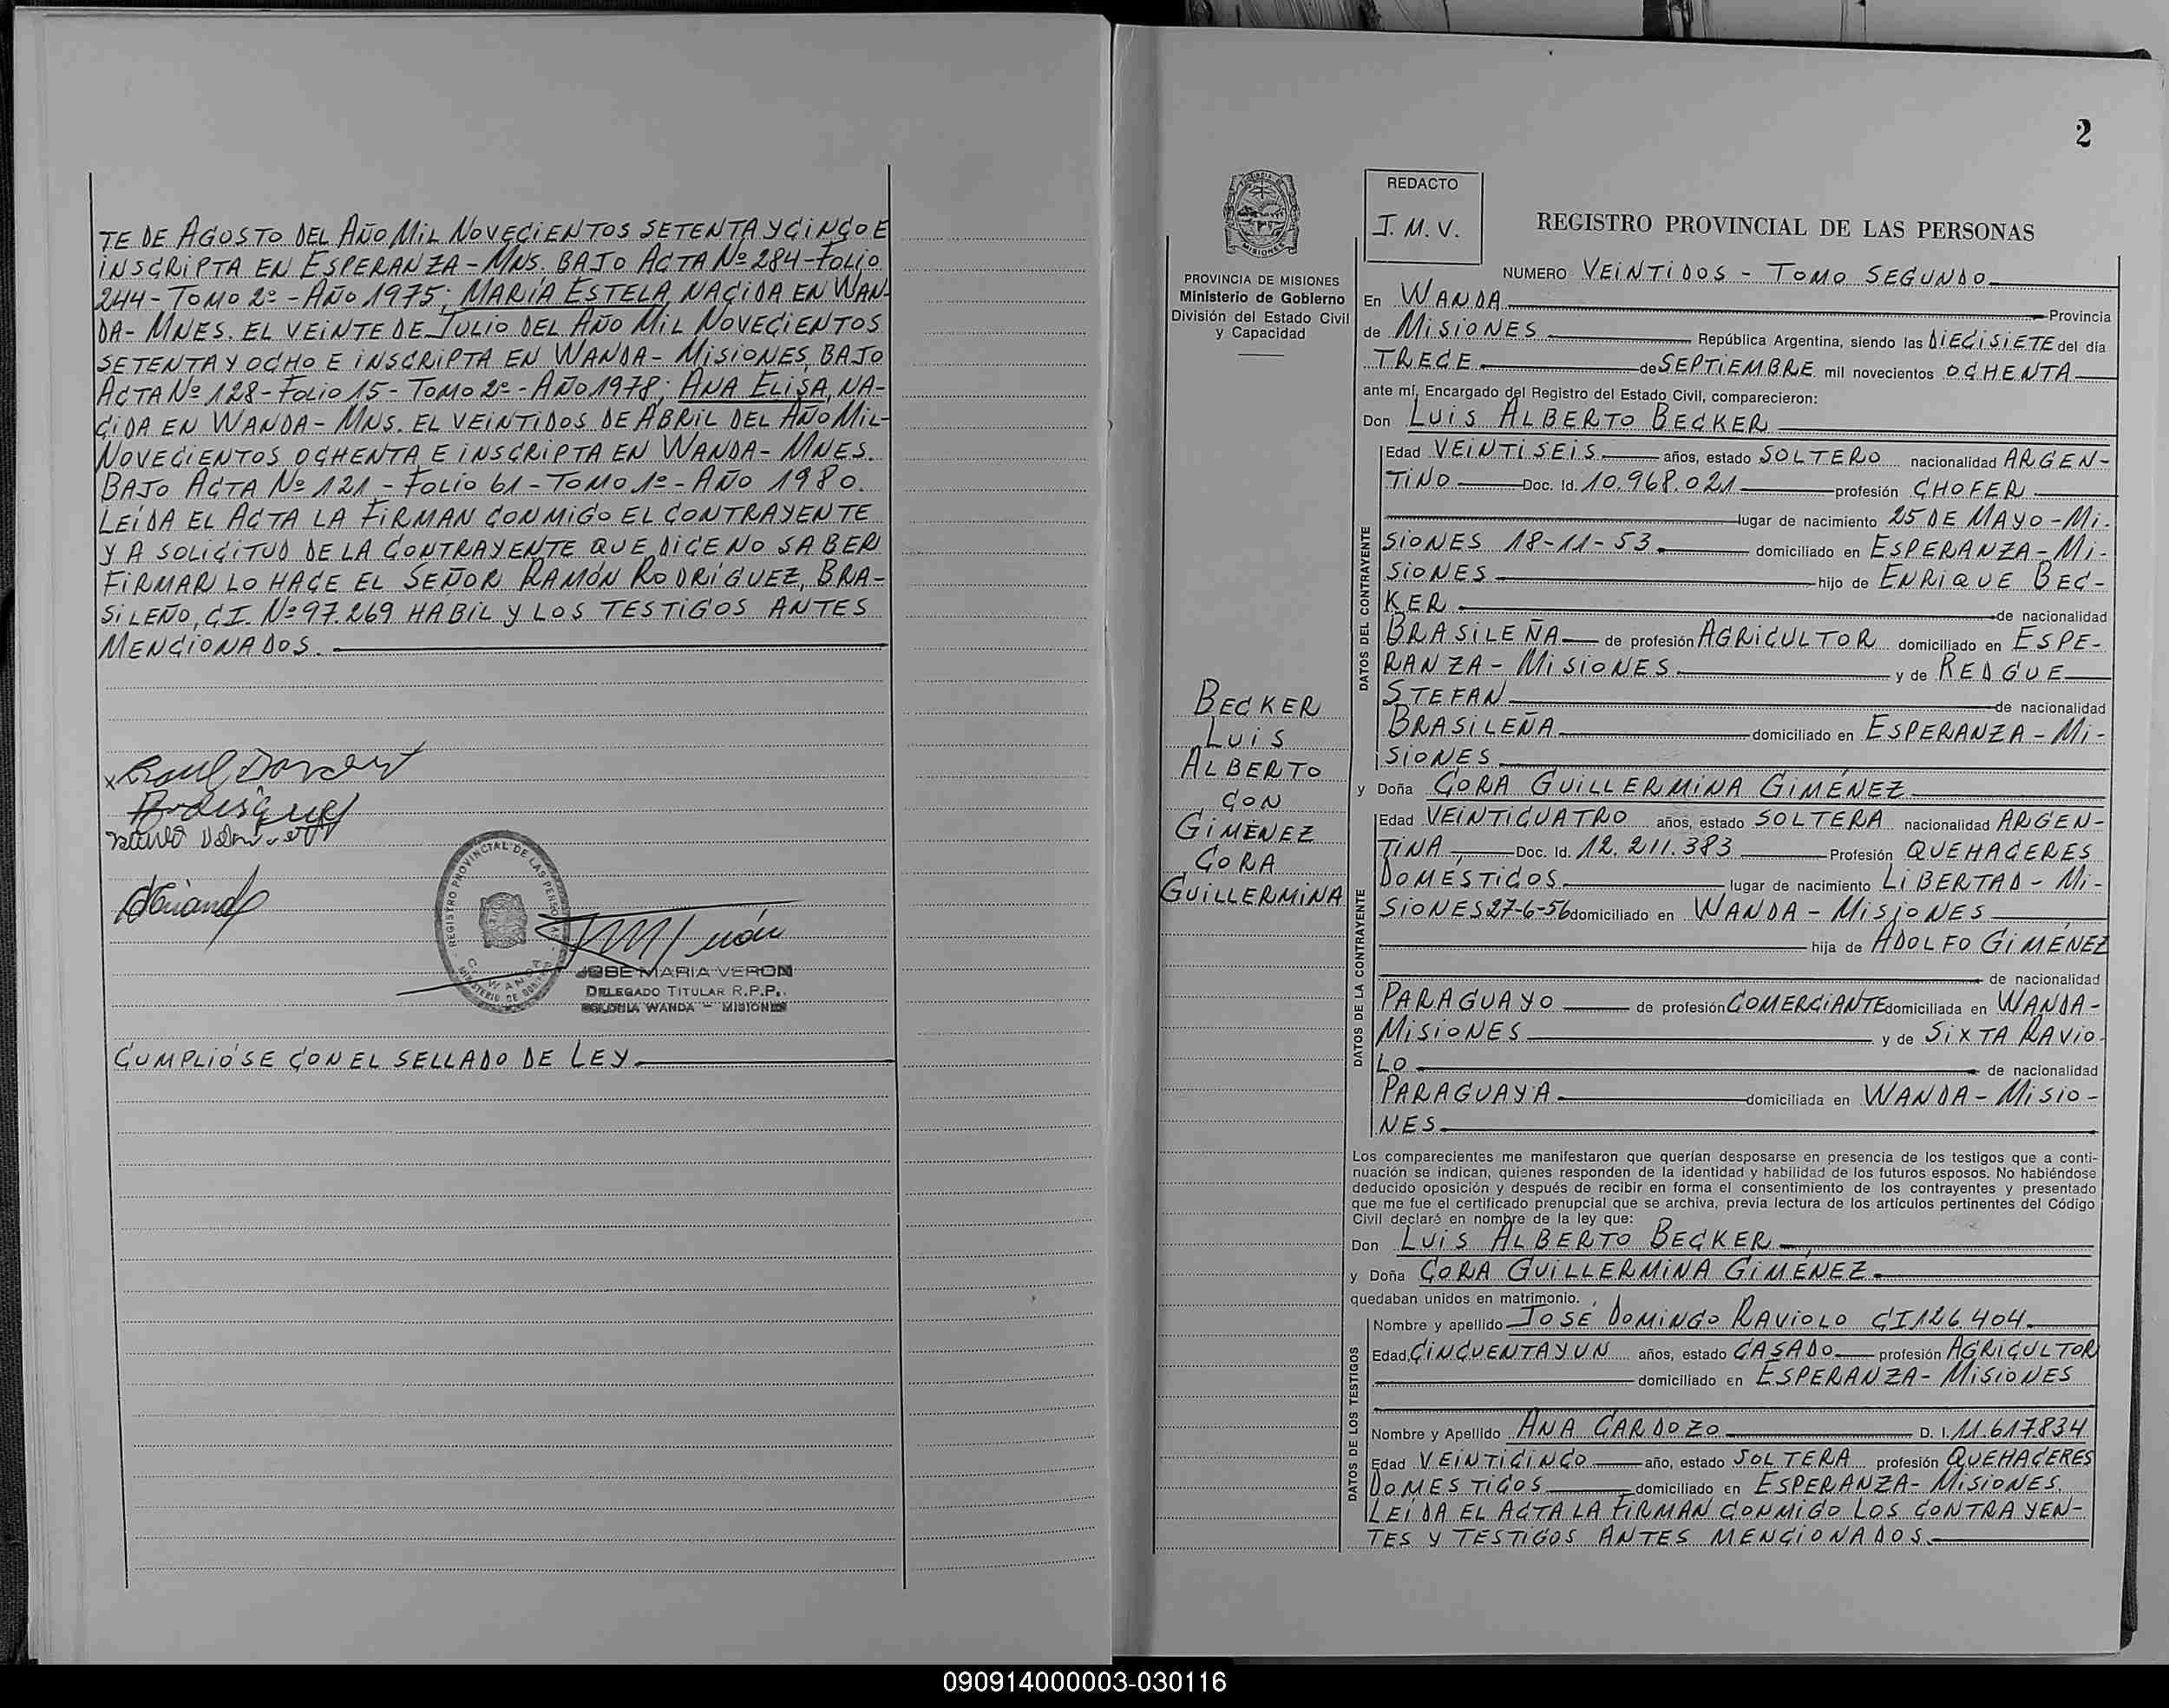 TE DE AGOSTO DEL AÑO MIL NOVECIENTOS SETENTA Y CINCO E
INSCRIPTA EN ESPERANZA - MNS. BAJO ACTA Nº 284 - FOLIO
244 - TOMO 2º - AÑO 1975; MARÍA ESTELA, NACIDA EN WAN-
DA - MNES. EL VEINTE DE JULIO DEL AÑO MIL NOVECIENTOS
SETENTA Y OCHO E INSCRIPTA EN WANDA - MISIONES, BAJO
ACTA Nº 128 - FOLIO 15 - TOMO 2º - AÑO 1978; ANA ELISA, NA-
CIDA EN WANDA - MNS. EL VEINTIDOS DE ABRIL DEL AÑO MIL-
NOVECIENTOS OCHENTA E INSCRIPTA EN WANDA - MNES.
BAJO ACTA Nº 121 - FOLIO 61 - TOMO 1º - AÑO 1980.
LEÍDA EL ACTA LA FIRMAN CONMIGO EL CONTRAYENTE
Y A SOLICITUD DE LA CONTRAYENTE QUE DICE NO SABER
FIRMAR LO HACE EL SEÑOR RAMÓN RODRÍGUEZ, BRA-
SILEÑO, C.I. Nº 97.269 HABIL Y LOS TESTIGOS ANTES
MENCIONADOS.
REGISTRO PROVINCIAL DE LAS PERSONAS
WANDA
MINISTERIO DE GOBIERNO
JOSE MARIA VERON
DELEGADO TITULAR R.P.P.
COLONIA WANDA - MISIONES
CUMPLIÓSE CON EL SELLADO DE LEY.
2
PROVINCIA DE MISIONES
Ministerio de Gobierno
División del Estado Civil
y Capacidad
BECKER
LUIS
ALBERTO
CON
GIMENEZ
CORA
GUILLERMINA
REDACTO
J. M. V.
REGISTRO PROVINCIAL DE LAS PERSONAS
NUMERO VEINTIDOS - TOMO SEGUNDO
En WANDA Provincia
de MISIONES República Argentina, siendo las DIECISIETE del día
TRECE de SEPTIEMBRE mil novecientos OCHENTA
ante mí, Encargado del Registro del Estado Civil, comparecieron:
Don LUIS ALBERTO BECKER
DATOS DEL CONTRAYENTE
Edad VEINTISEIS años, estado SOLTERO nacionalidad ARGEN-
TINO Doc. Id. 10.968.021 profesión CHOFER
lugar de nacimiento 25 DE MAYO - MI-
SIONES 18-11-53 domiciliado en ESPERANZA - MI-
SIONES hijo de ENRIQUE BEC-
KER de nacionalidad
BRASILEÑA de profesión AGRICULTOR domiciliado en ESPE-
RANZA - MISIONES y de REDGUE
STEFAN de nacionalidad
BRASILEÑA domiciliado en ESPERANZA - MI-
SIONES
y Doña CORA GUILLERMINA GIMÉNEZ
DATOS DE LA CONTRAYENTE
Edad VEINTICUATRO años, estado SOLTERA nacionalidad ARGEN-
TINA Doc. Id. 12.211.383 Profesión QUEHACERES
DOMÉSTICOS lugar de nacimiento LIBERTAD - MI-
SIONES 27-6-56 domiciliado en WANDA - MISIONES
hija de ADOLFO GIMÉNEZ
de nacionalidad
PARAGUAYO de profesión COMERCIANTE domiciliada en WANDA -
MISIONES y de SIXTA RAVIO-
LO de nacionalidad
PARAGUAYA domiciliada en WANDA - MISIO-
NES
Los comparecientes me manifestaron que querían desposarse en presencia de los testigos que a conti-
nuación se indican, quienes responden de la identidad y habilidad de los futuros esposos. No habiéndose
deducido oposición y después de recibir en forma el consentimiento de los contrayentes y presentado
que me fue el certificado prenupcial que se archiva, previa lectura de los artículos pertinentes del Código
Civil declaré en nombre de la ley que:
Don LUIS ALBERTO BECKER
y Doña CORA GUILLERMINA GIMÉNEZ
quedaban unidos en matrimonio.
DATOS DE LOS TESTIGOS
Nombre y apellido JOSÉ DOMINGO RAVIOLO CI 126.404
Edad CINCUENTA Y UN años, estado CASADO profesión AGRICULTOR
domiciliado en ESPERANZA - MISIONES
Nombre y Apellido ANA CARDOZO D. I. 11.617834
Edad VEINTICINCO año, estado SOLTERA profesión QUEHACERES
DOMESTICOS domiciliado en ESPERANZA - MISIONES.
LEÍDA EL ACTA LA FIRMAN CONMIGO LOS CONTRAYEN-
TES Y TESTIGOS ANTES MENCIONADOS.
090914000003-030116